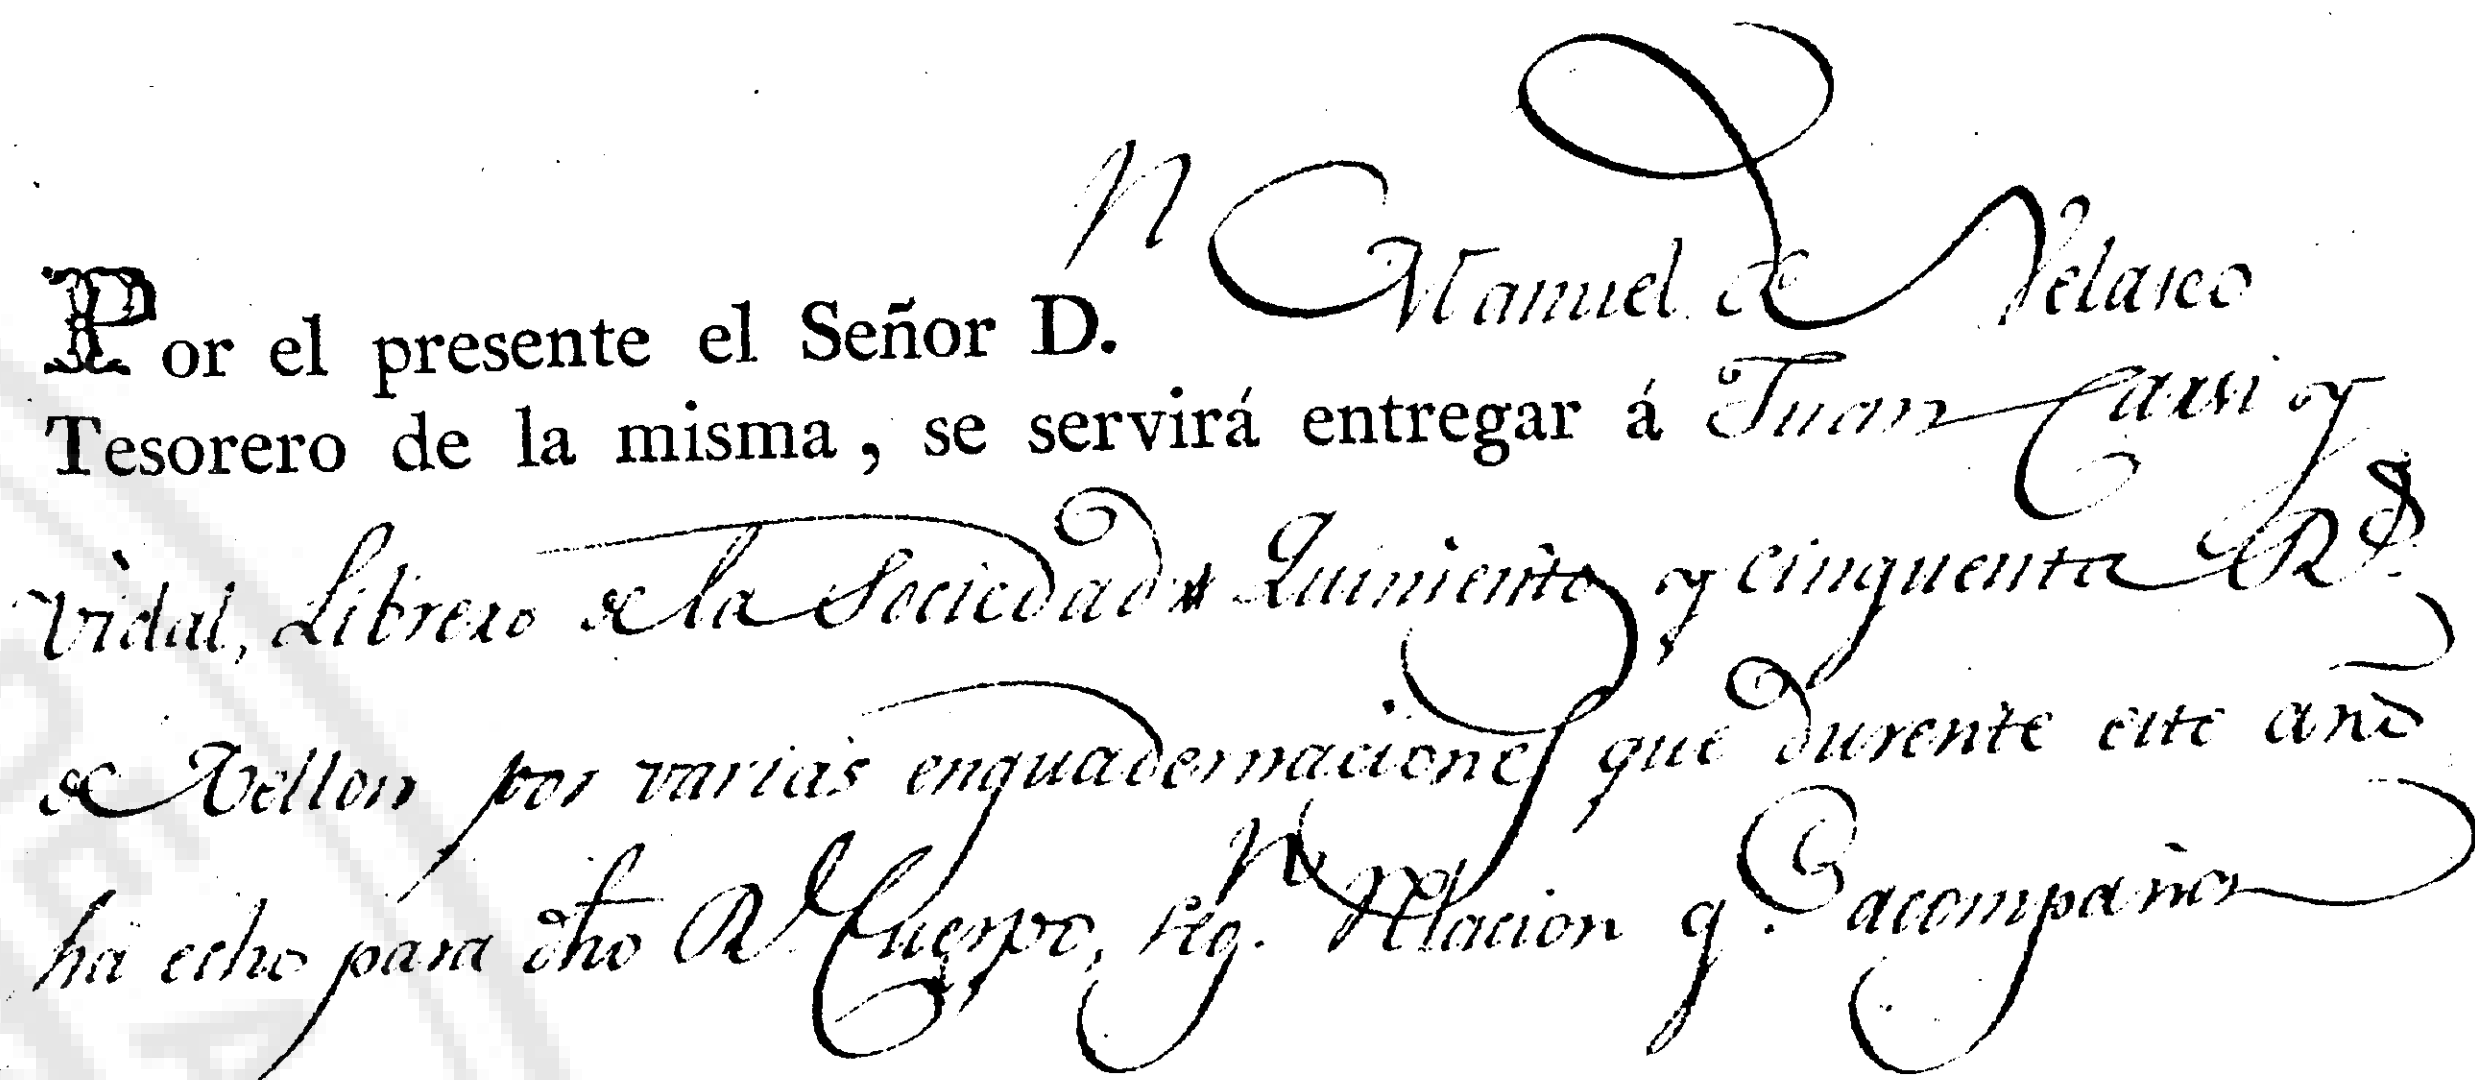 Por el presente el Señor D.n Manuel de Velasco
Tesorero de la misma, se servirá entregar á Juan Carsi y
Vidal, Librero de la Sociedad Quiniento y cinquenta R.s
de Vellon por varias enquadernaciones que durente este año
ha echo para dho Rl. Cuerpo, seg.n Relacion q.e acompaña